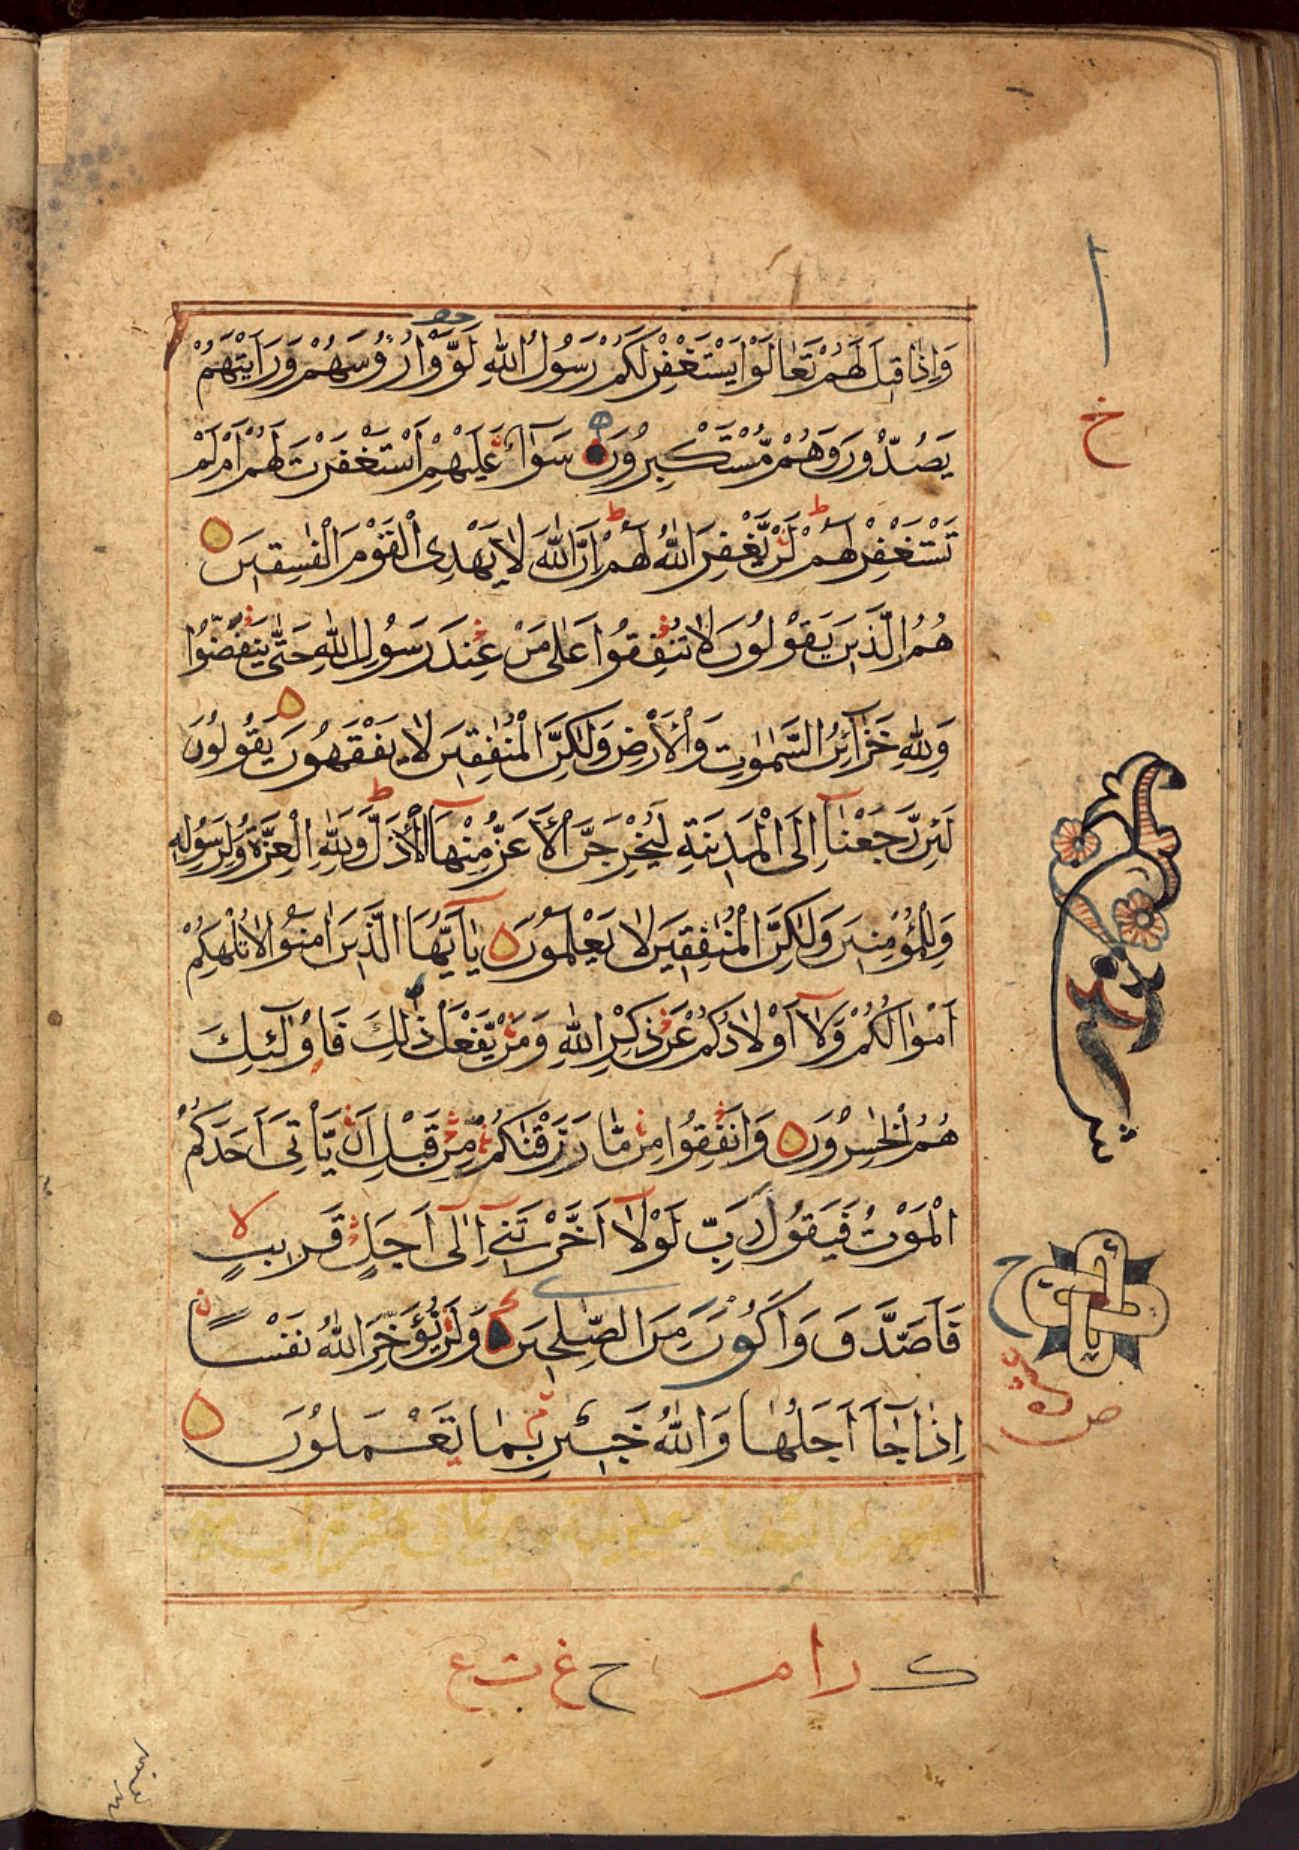 وَاِذَا قِيلَ لَهُمْ تَعَالَوْا يَسْتَغْفِرْ لَكُمْ رَسُولُ اللّٰهِ لَوَّوْا رُؤُسَهُمْ وَرَاَيْتَهُمْ
يَصُدُّونَ وَهُمْ مُّسْتَكْبِرُونَ سَوَآءٌ عَلَيْهِمْ اَسْتَغْفَرْتَ لَهُمْ اَمْ لَمْ
تَسْتَغْفِرْ لَهُمْ لَنْ يَّغْفِرَ اللّٰهُ لَهُمْ اِنَّ اللّٰهَ لَا يَهْدِى الْقَوْمَ الْفٰسِقِينَ
هُمُ الَّذِينَ يَقُولُونَ لَا تُنْفِقُوا عَلٰى مَنْ عِنْدَ رَسُولِ اللّٰهِ حَتّٰى يَنْفَضُّوْا
وَلِلّٰهِ خَزَآئِنُ السَّمٰوٰتِ وَالْاَرْضِ وَلٰكِنَّ الْمُنٰفِقِينَ لَا يَفْقَهُونَ يَقُولُونَ
لَئِنْ رَّجَعْنَآ اِلَى الْمَدِينَةِ لَيُخْرِجَنَّ الْاَعَزُّ مِنْهَا الْاَذَلَّ وَلِلّٰهِ الْعِزَّةُ وَلِرَسُولِهٖ
وَلِلْمُؤْمِنِينَ وَلٰكِنَّ الْمُنٰفِقِينَ لَا يَعْلَمُونَ يٰآ اَيُّهَا الَّذِينَ اٰمَنُوْا لَا تُلْهِكُمْ
اَمْوَالُكُمْ وَلَآ اَوْلَادُكُمْ عَنْ ذِكْرِ اللّٰهِ وَمَنْ يَّفْعَلْ ذٰلِكَ فَاُولٰٓئِكَ
هُمُ الْخٰسِرُونَ وَاَنْفِقُوا مِنْ مَّا رَزَقْنٰكُمْ مِّنْ قَبْلِ اَنْ يَّاْتِىَ اَحَدَكُمُ
الْمَوْتُ فَيَقُولَ رَبِّ لَوْلَآ اَخَّرْتَنِىٓ اِلٰٓى اَجَلٍ قَرِيبٍ
فَاَصَّدَّقَ وَاَكُونَ مِنَ الصّٰلِحِينَ وَلَنْ يُّؤَخِّرَ اللّٰهُ نَفْسًا
اِذَا جَآءَ اَجَلُهَا وَاللّٰهُ خَبِيرٌ بِمَا تَعْمَلُونَ
خ
ح
ص
ك رام ح غ ت ع